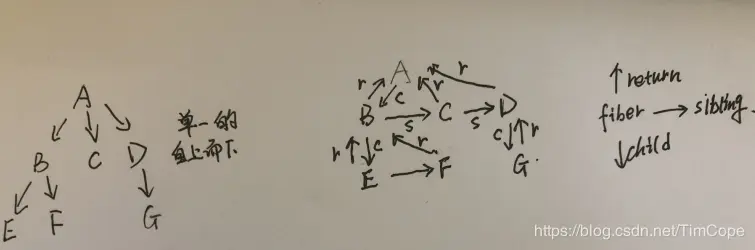 A
B C D
E F G
单一的
自上而下
A
r c r r
B s C s D
r c r c r
E F G.
↑return
fiber → sibling
↓child
https://blog.csdn.net/TimCope